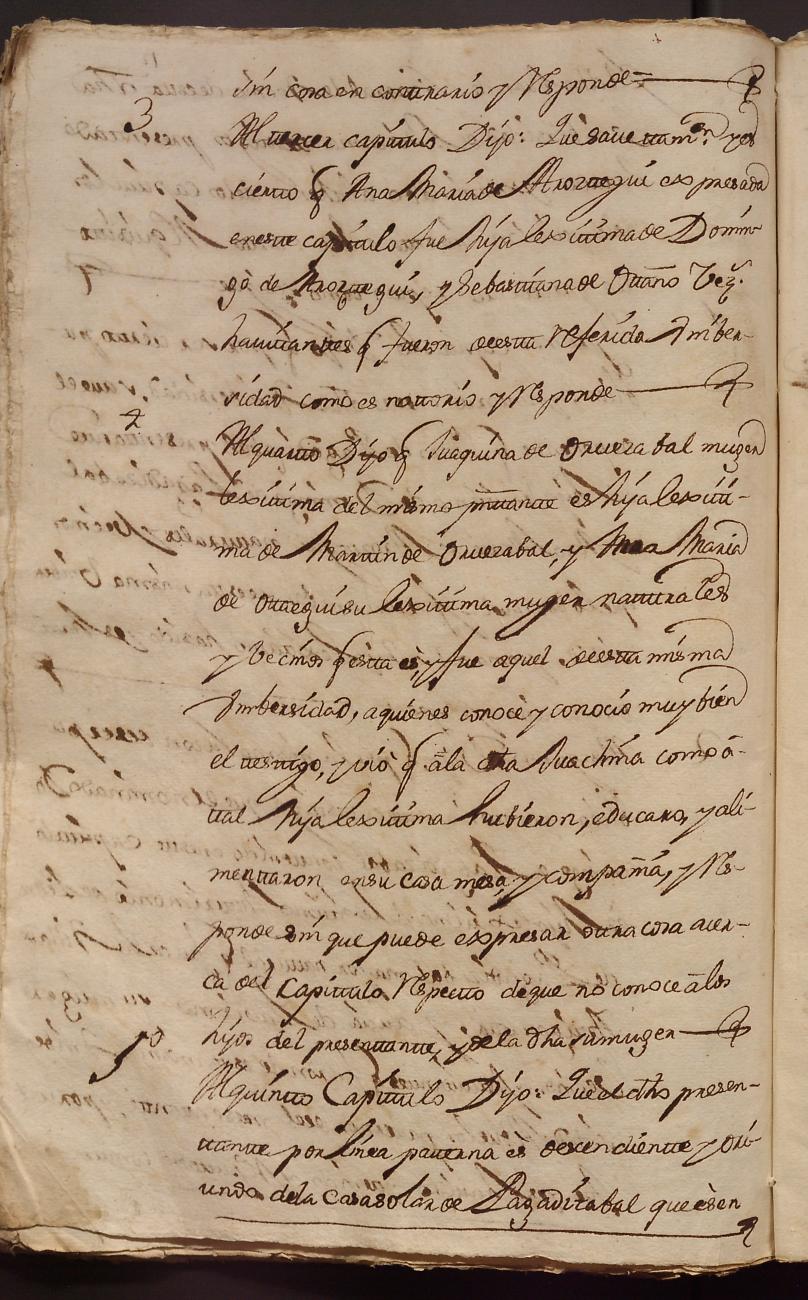 sin cosa en contrario y responde
3 Al tercer capitulo Dijo: Que save tam.en y es
cierto q Ana Maria de Aroztegui expresada
en este capitulo fue hija lexitima de Domin-
go de Aroztegui, y Sebastiana de Otaño Vez.s
havitantes q fueron de esta referida Vniber-
sidad como es notorio y responde
4 Al quarto Dijo q Juaquina de Oruezabal muger
lexitima del mismo pntante es hija lexiti-
ma de Martin de Oruezabal, y Ana Maria
de Otegui su lexitima muger naturales
y Vecinos q esta es, y fue aquel de esta misma
Vnibersidad, a quienes conoce y conocio muy bien
el testigo, y vio q â la dha Juachina como â
tal hija lexitima hubieron, educaro, y ali-
mentaron en su casa mesa, y compañia, y res-
ponde sin que puede expresar otra cosa acer-
ca del capitulo respecto de que no conoce â los
hijos del presentante, y de la dha su muger
5o Al quinto Capitulo Dijo: Que el dho presen-
tante por linea paterna es descendiente y ori-
undo de la casa solar de Pagaditabal que es en